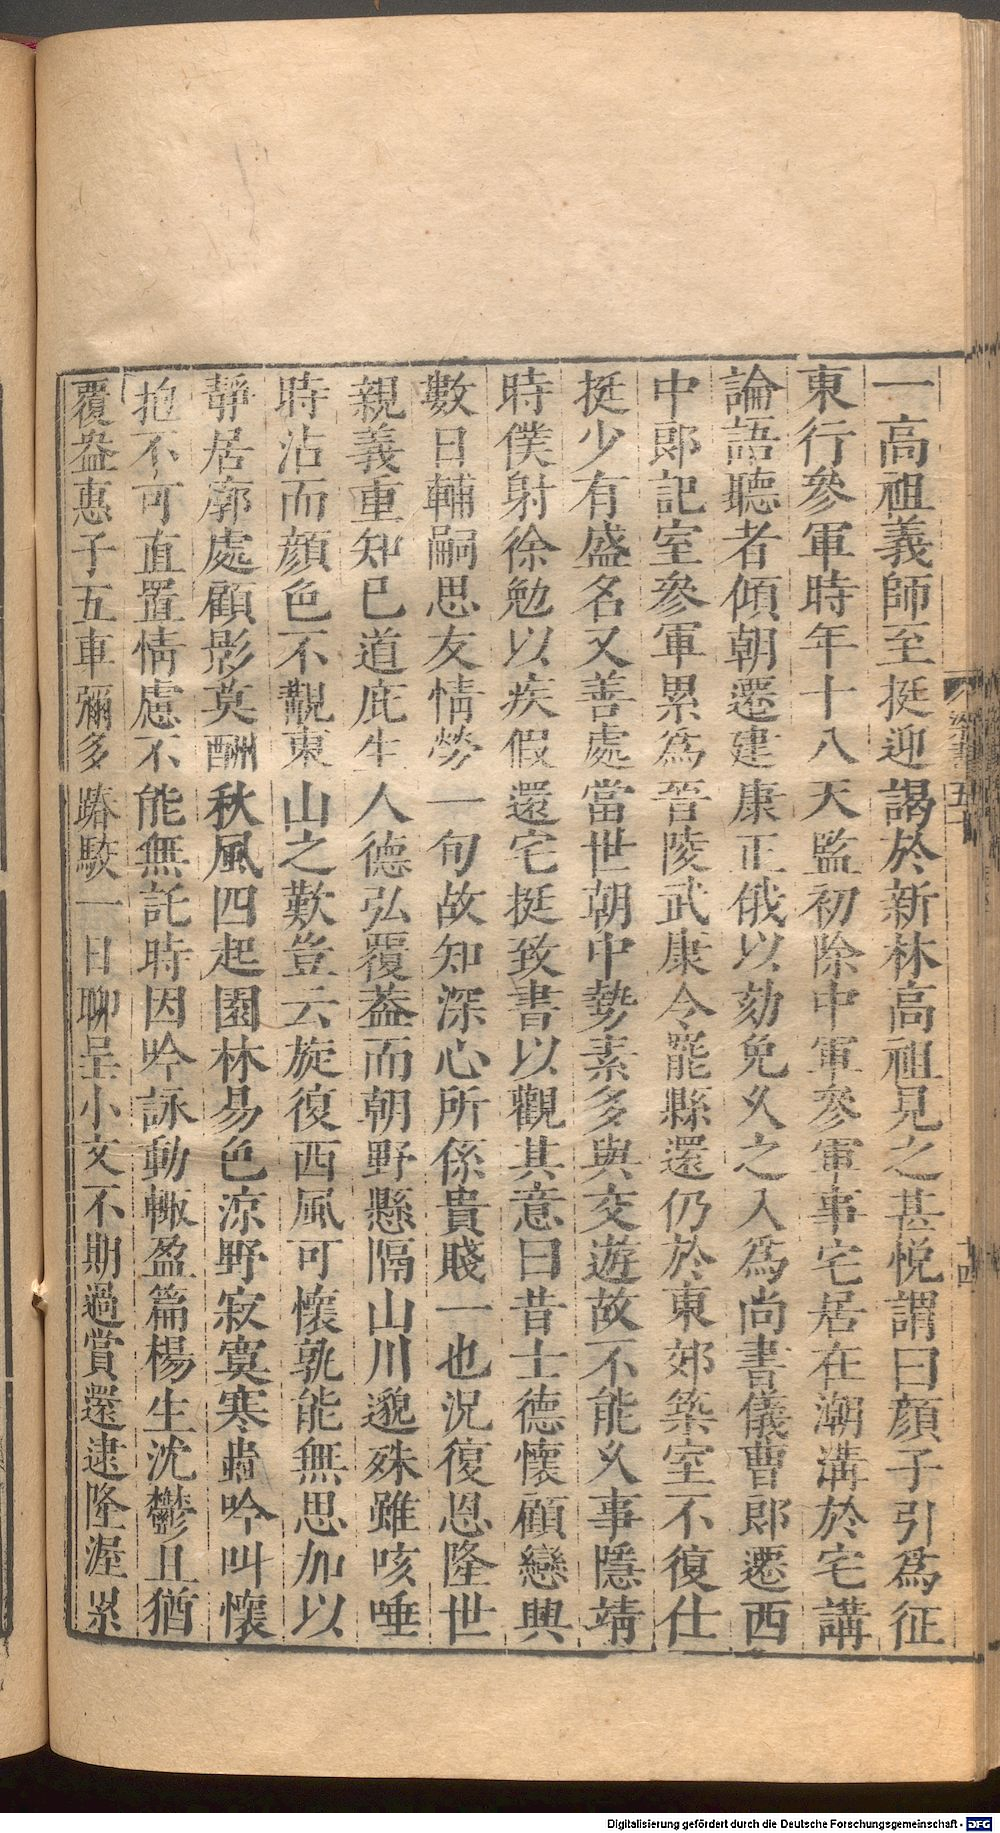 一高祖義師至挺迎謁於新林高祖見之甚悦謂曰顔子引爲征
東行參軍時年十八天監初除中軍參軍事宅居在潮溝於宅講
論語聽者傾朝遷建康正俄以劾免乆之入爲尚書儀曹郎遷西
中郎記室參軍累爲晉陵武康令罷縣還仍於東郊築室不復仕
挺少有盛名又善處當世朝中勢素多與交遊故不能乆事隱靖
時僕射徐勉以疾假還宅挺致書以觀其意曰昔士德懷顧戀興
數日輔嗣思友情勞一旬故知深心所係貴賤一也況復恩隆世
親義重知巳道庇生人德弘覆葢而朝野懸隔山川邈殊雖咳唾
時沾而顔色不覿東山之歎豈云旋復西風可懷孰能無思加以
靜居廓處顧影莫酬秋風四起園林易色涼野寂寞寒蟲吟叫懷
抱不可直置情慮不能無託時因吟詠動輙盈篇楊生沈鬱且猶
覆盎惠子五車彌多踳駮一日聊呈小文不期過賞還逮隆渥累
梁書五十
十四
Digitalisierung gefördert durch die Deutsche Forschungsgemeinschaft - DFG